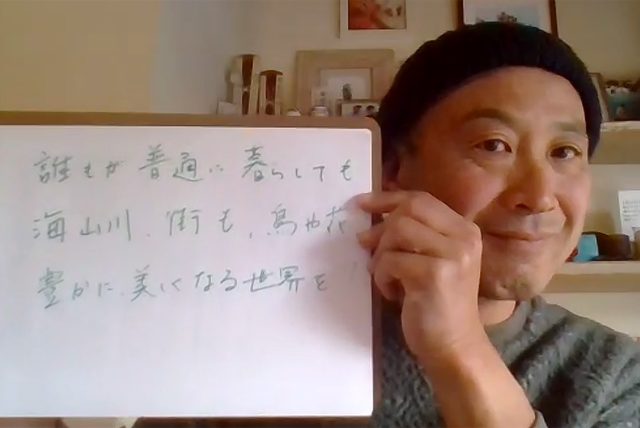 誰もが普通に暮らしても
海山川、街も、鳥や花
豊かに、美しくなる世界を